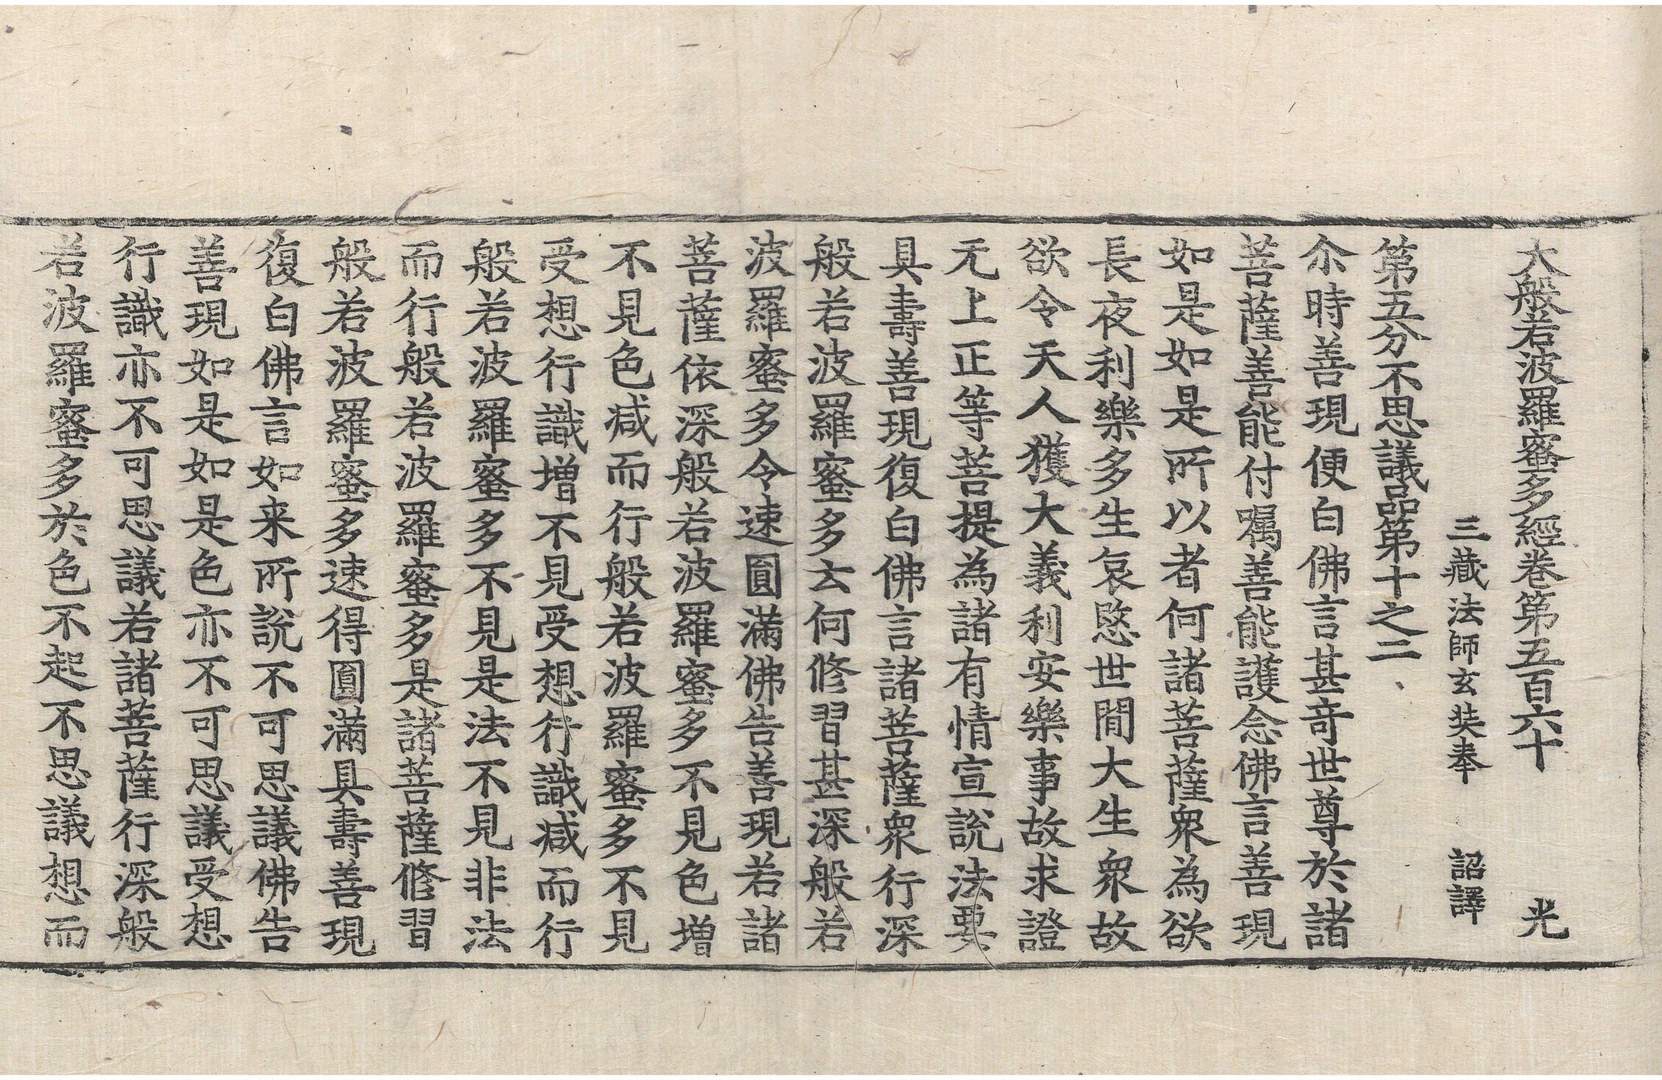 大般若波羅蜜多經卷第五百六十 光
三藏法師玄奘奉 詔譯
第五分不思議品第十之二
尒時善現便白佛言甚竒世尊於諸
菩薩善能付嘱善能護念佛言善現
如是如是所以者何諸菩薩衆為欲
長夜利樂多生哀愍世間大生衆故
欲令天人獲大義利安樂事故求證
无上正等菩提為諸有情宣説法要
具壽善現復白佛言諸菩薩衆行深
般若波羅蜜多云何修習甚深般若
波羅蜜多令速圓滿佛告善現若諸
菩薩依深般若波羅蜜多不見色增
不見色减而行般若波羅蜜多不見
受想行識增不見受想行識减而行
般若波羅蜜多不見是法不見非法
而行般若波羅蜜多是諸菩薩修習
般若波羅蜜多速得圓滿具壽善現
復白佛言如来所説不可思議佛告
善現如是如是色亦不可思議受想
行識亦不可思議若諸菩薩行深般
若波羅蜜多於色不起不思議想而